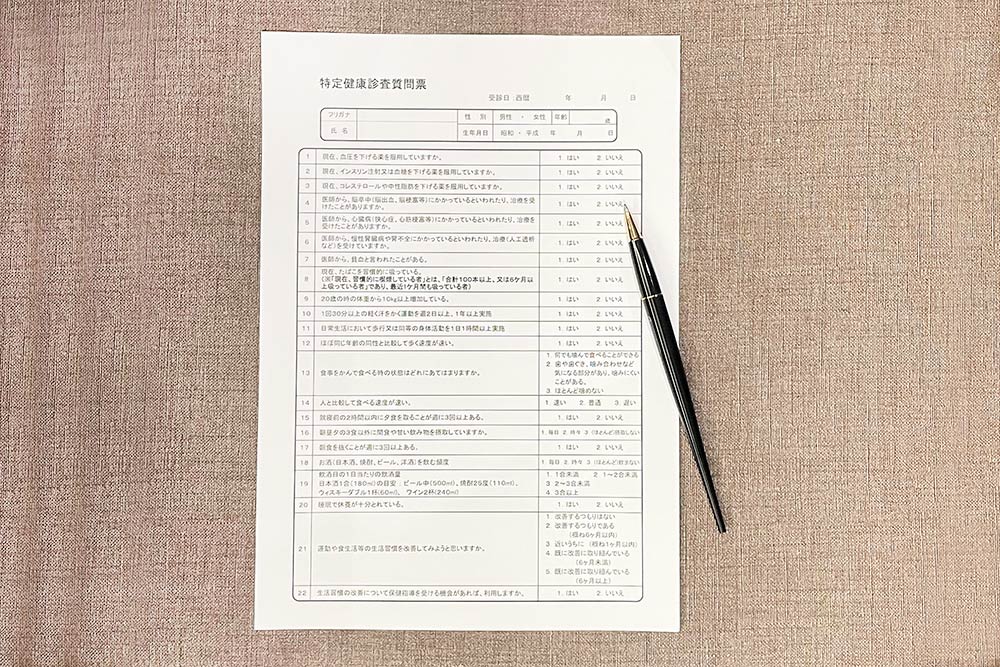 特定健康診査質問票
受診日 西暦 年 月 日
フリガナ 性別 男性 ・ 女性 年齢 歳
氏名 生年月日 昭和 ・ 平成 年 月 日
1 現在、血圧を下げる薬を服用していますか。 1. はい 2. いいえ
2 現在、インスリン注射又は血糖を下げる薬を服用していますか。 1. はい 2. いいえ
3 現在、コレステロールや中性脂肪を下げる薬を服用していますか。 1. はい 2. いいえ
4 医師から、脳卒中(脳出血、脳梗塞等)にかかっているといわれたり、治療を受
けたことがありますか。 1. はい 2. いいえ
5 医師から、心臓病(狭心症、心筋梗塞等)にかかっているといわれたり、治療を
受けたことがありますか。 1. はい 2. いいえ
6 医師から、慢性腎臓病や腎不全にかかっているといわれたり、治療(人工透析
など)を受けていますか。 1. はい 2. いいえ
7 医師から、貧血と言われたことがある。 1. はい 2. いいえ
8 現在、たばこを習慣的に吸っている。
(※「現在、習慣的に喫煙している者」とは、「合計100本以上、又は6ケ月以
上吸っている者」であり、最近1ケ月間も吸っている者) 1. はい 2. いいえ
9 20歳の時の体重から10kg以上増加している。 1. はい 2. いいえ
10 1回30分以上の軽く汗をかく運動を週2日以上、1年以上実施 1. はい 2. いいえ
11 日常生活において歩行又は同等の身体活動を1日1時間以上実施 1. はい 2. いいえ
12 ほぼ同じ年齢の同性と比較して歩く速度が速い。 1. はい 2. いいえ
13 食事をかんで食べる時の状態はどれにあてはまりますか。
1 何でも噛んで食べることができる
2 歯や歯ぐき、噛み合わせなど
気になる部分があり、噛みにくい
ことがある。
3 ほとんど噛めない
14 人と比較して食べる速度が速い。 1. 速い 2. 普通 3. 遅い
15 就寝前の2時間以内に夕食を取ることが週に3回以上ある。 1. はい 2. いいえ
16 朝昼夕の3食以外に間食や甘い飲み物を摂取していますか。 1. 毎日 2. 時々 3 (ほとんど)摂取しない
17 朝食を抜くことが週に3回以上ある。 1. はい 2. いいえ
18 お酒(日本酒、焼酎、ビール、洋酒)を飲む頻度 1. 毎日 2. 時々 3 (ほとんど)飲まない
19 飲酒日の1日当たりの飲酒量
日本酒1合(180㎖)の目安：ビール中(500㎖)、焼酎25度(110㎖)、
ウィスキーダブル1杯(60㎖)、ワイン2杯(240㎖)
1. 1合未満 2 1～2合未満
3 2～3合未満
4 3合以上
20 睡眠で休養が十分とれている。 1. はい 2. いいえ
21 運動や食生活等の生活習慣を改善してみようと思いますか。
1 改善するつもりはない
2 改善するつもりである
(概ね6ヶ月以内)
3 近いうちに (概ね1ヶ月以内)
4 既に改善に取り組んでいる
(6ヶ月未満)
5. 既に改善に取り組んでいる
(6ヶ月以上)
22 生活習慣の改善について保健指導を受ける機会があれば、利用しますか。 1. はい 2. いいえ